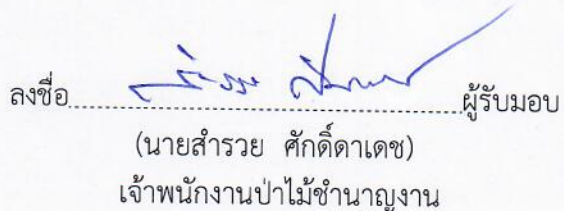 ลงชื่อ........................................................ผู้รับมอบ
(นายสำรวย ศักดิ์ดาเดช)
เจ้าพนักงานป่าไม้ชำนาญงาน